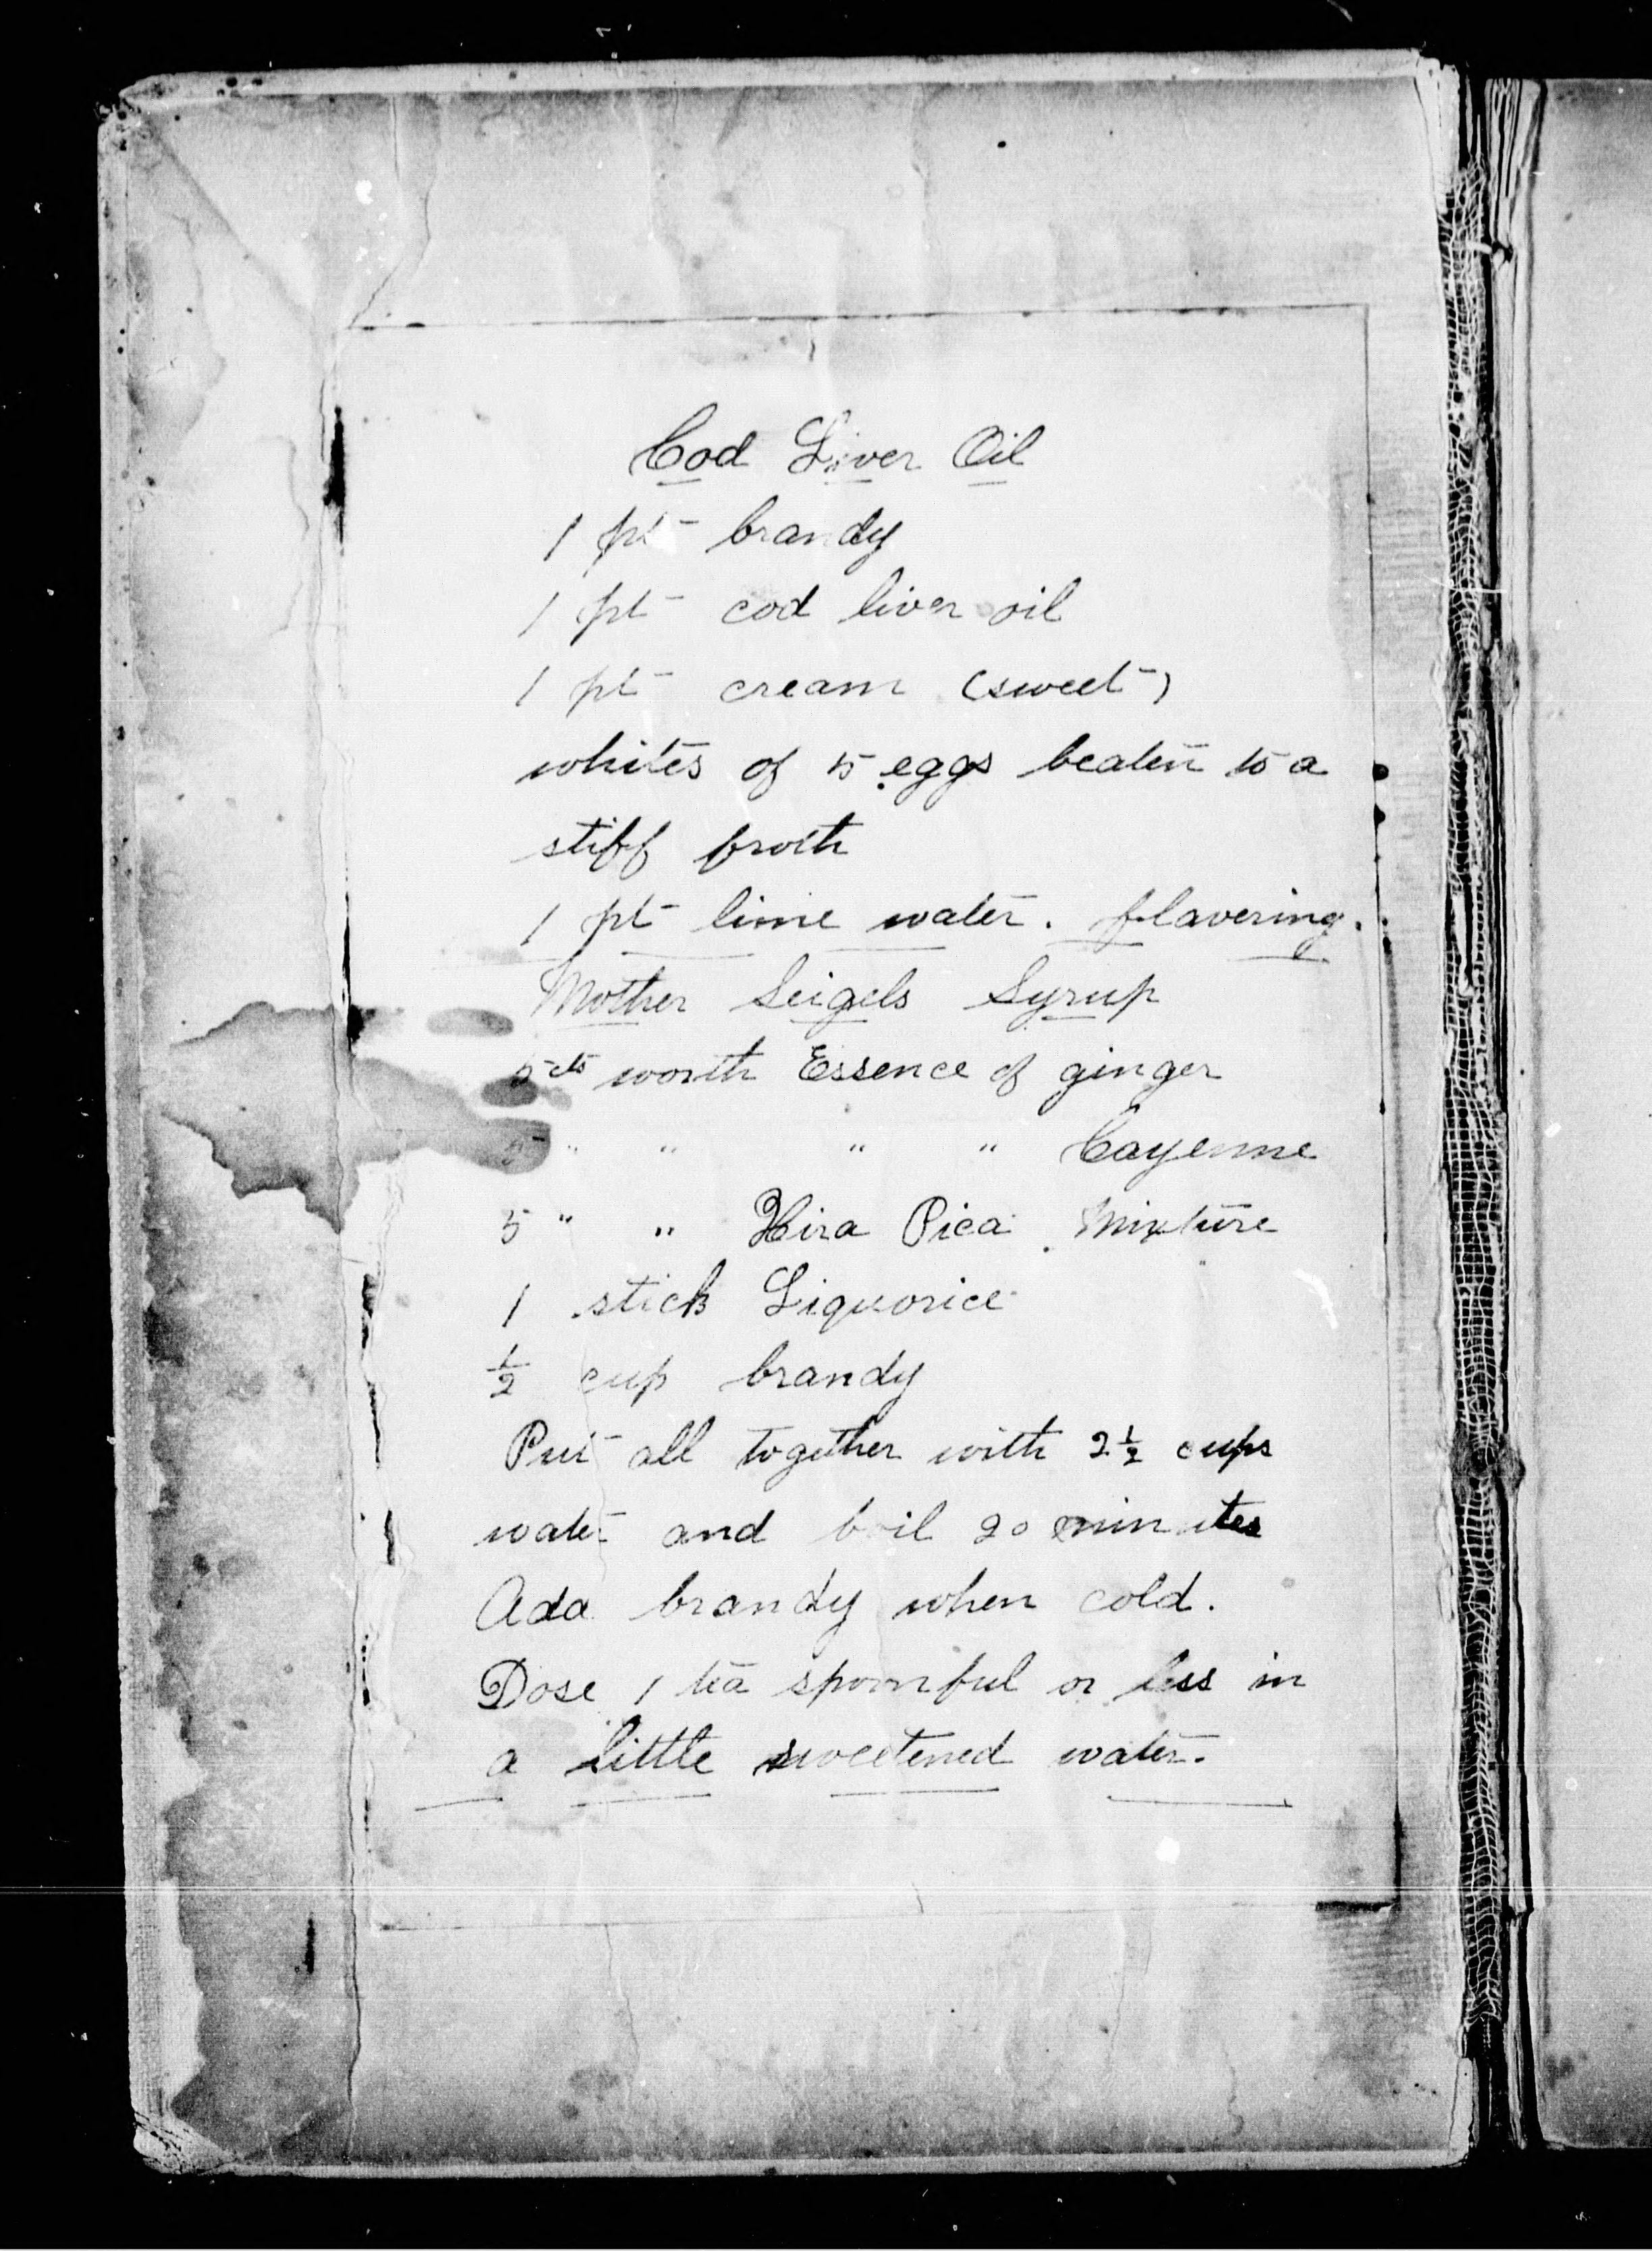 Cod Liver Oil
1 pt brandy
1 pt cod liver oil
1 pt cream (sweet)
whites of 5 eggs beaten to a
stiff froth
1 pt lime water. flavering.
Mother Seigels Syrup
5 cts worth Essence of ginger
5 " " " " Cayenne
5 " " Hira Pica Mixture
1 stick Liquorice
1/2 cup brandy
Put all together with 2 1/2 cups
water and boil 20 minutes
Add brandy when cold.
Dose 1 tea spoonful or less in
a little sweetened water.